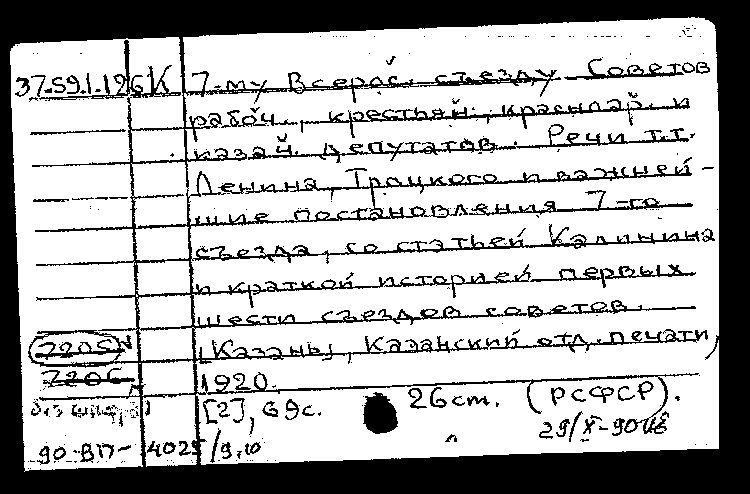 37.59.1.126 К 7-му Всерос. съезду Советов
рабоч., крестьян., красноар. и
казач. депутатов. Речи т.т.
Ленина, Троцкого и важней-
шие постановления 7-го
съезда, со статьей Калинина
и краткой историей первых
шести съездов советов.
7205 [Казань], Казанский отд. печати,
7206 1920.
без шифра) [2], 69с. 26 cm. (РСФСР).
29/X-90
90-ВП- 4025/9,10